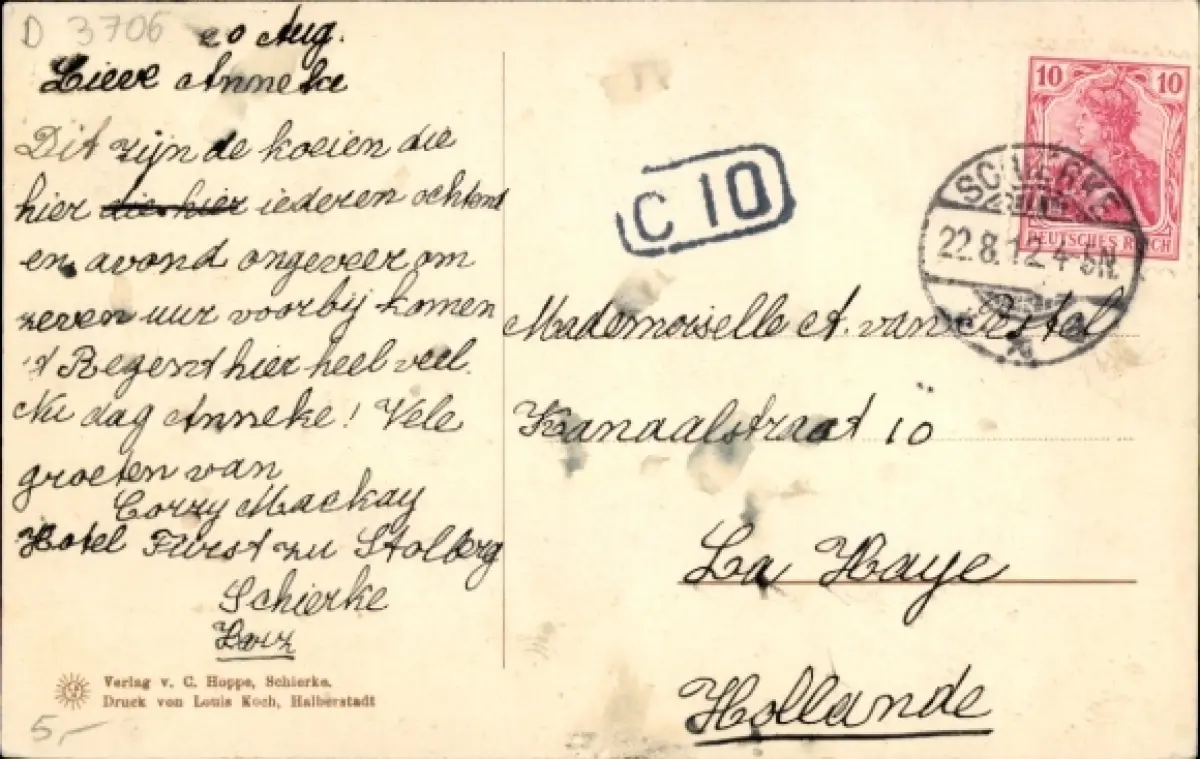 D 3706
20 Aug.
Lieve Anneke
Dit zijn de koeien die
hier die hier iederen ochtend
en avond ongeveer om
zeven uur voorbij komen
't Regent hier heel veel.
Nu dag Anneke! Vele
groeten van
Corry Mackay
Hotel Fürst zu Stolberg
Schierke
Harz
Verlag v. C. Hoppe, Schierke.
Druck von Louis Koch, Halberstadt
5,-
C 10
10 10
DEUTSCHES REICH
SCHIERKE
22.8.12.4-5N.
Mademoiselle A. van
Kanaalstraat 10
La Haye
Hollande